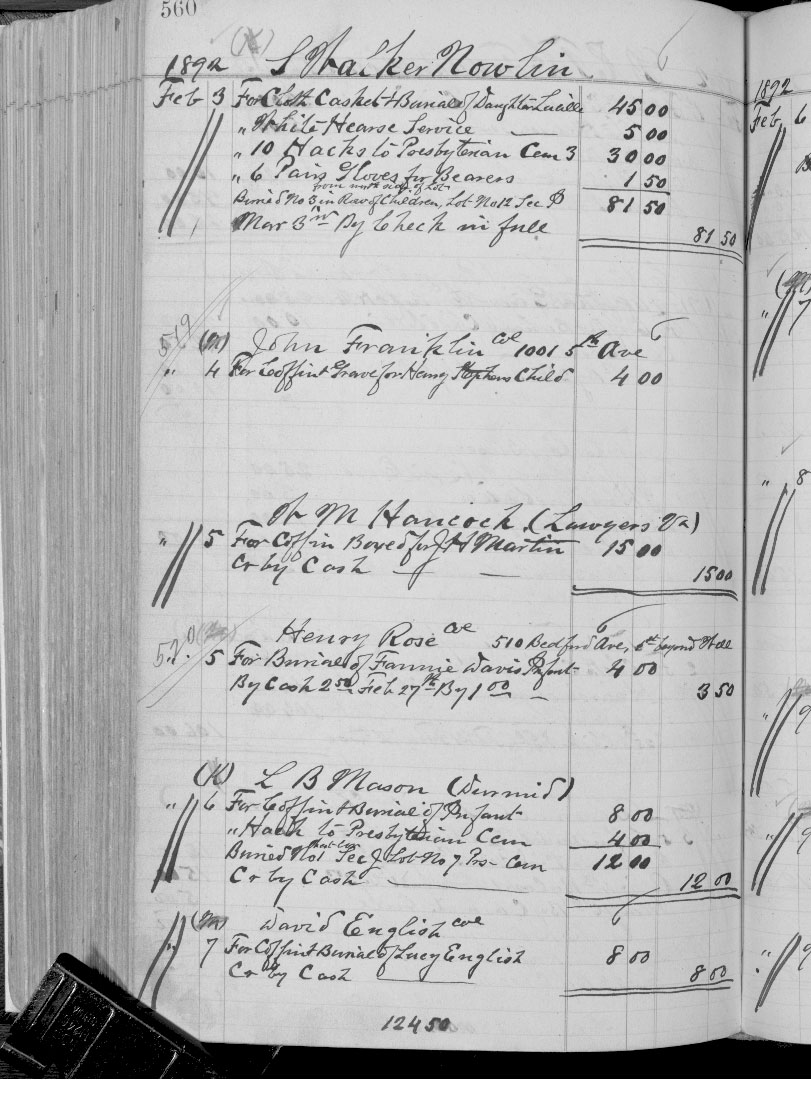 560
(K)
1892 S Walker Nowlin
Feb 3 For Cloth Casket & Burial of Daughter Lucille 45 00
" White Hearse Service 5 00
" 10 Hacks to Presbyterian Cem 3 30 00
" 6 Pairs Gloves for Bearers 1 50
from north side of Lot
Buried No 3 in Row of Children, Lot No 12 Sec D 81 50
Mar 3rd By Check in full 81 50
519 (M) John Franklin Col 1001 5th Ave 6
" 4 For Coffin & Grave for Henry Stephens Child 4 00
W M Hancock (Lawyers Va)
" 5 For Coffin Boxed for J H Martin 15 00
Cr by Cash 15 00
520 Henry Rose Col 510 Bedford Ave, beyond Hall
5 For Burial of Fannie Davis Infant 4 00
By Cash 2 50 Feb 27th By 1 00 3 50
(K) L B Mason (Durmid)
" 6 For Coffin & Burial of Infant 8 00
" Hack to Presbyterian Cem 4 00
Buried No 1 Sec J Lot No 7 Pres- Cem 12 00
Cr by Cash 12 00
(M) David English Col 6
" 7 For Coffin & Burial of Lucy English 8 00
Cr by Cash 8 00
124 50
1892
Feb 6
(M)
" 7
" 8
" 9
" 9
" 9